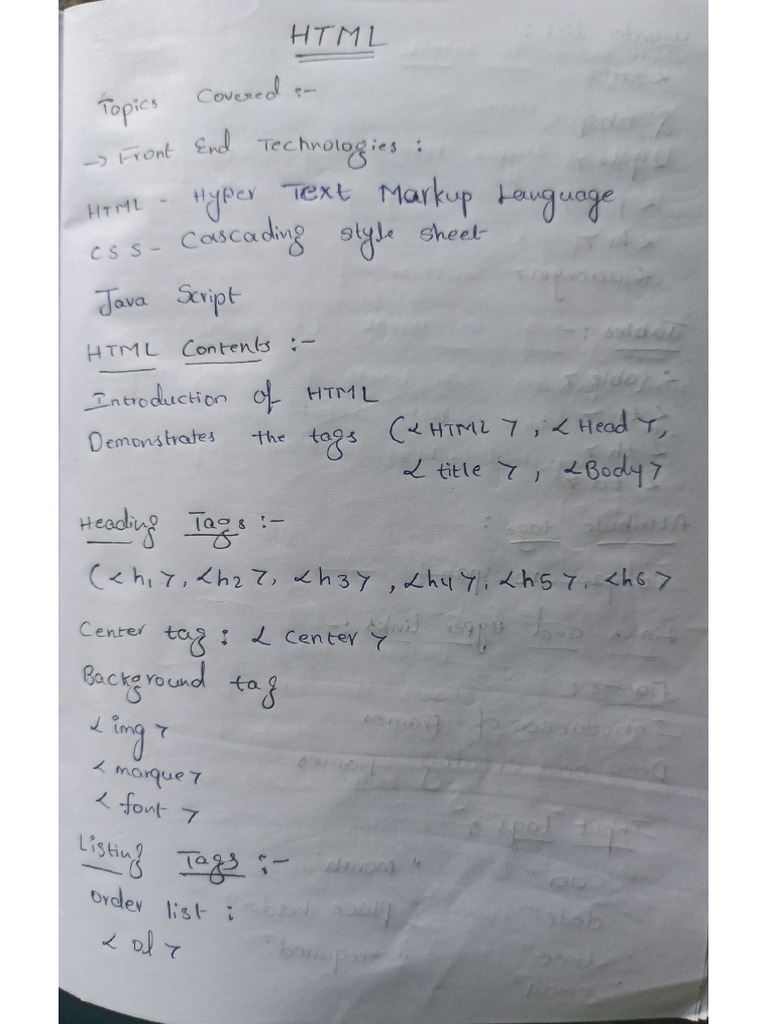 HTML
Topics Covered :-
-> Front End Technologies :
HTML - Hyper Text Markup Language
CSS - Cascading style sheet
Java Script
HTML Contents :-
Introduction of HTML
Demonstrates the tags (<HTML>, <Head>,
<title>, <Body>
Heading Tags :-
(<h1>, <h2>, <h3>, <h4>, <h5>, <h6>
Center tag : <center>
Background tag
<img>
<marque>
<font>
Listing Tags :-
order list :
<ol>